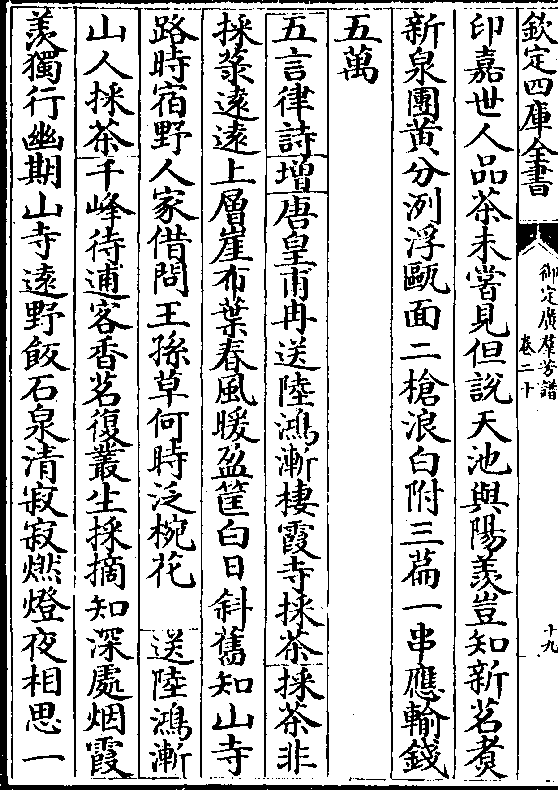 欽定四庫全書
御定廣羣芳譜
卷二十
十九
印嘉世人品茶未嘗見但説天池與陽羨豈知新茗煑
新泉團黄分洌浮甌面二槍浪白附三篇一串應輸錢
五萬
五言律詩增唐皇甫冉送陸鴻漸棲霞寺採茶採茶非
採菉遠遠上層崖布葉春風暖盈筐白日斜舊知山寺
路時宿野人家借問王孫草何時泛椀花 送陸鴻漸
山人採茶千峰待逋客香茗復叢生採摘知深處烟霞
羨獨行幽期山寺遠野飯石泉清寂寂燃燈夜相思一